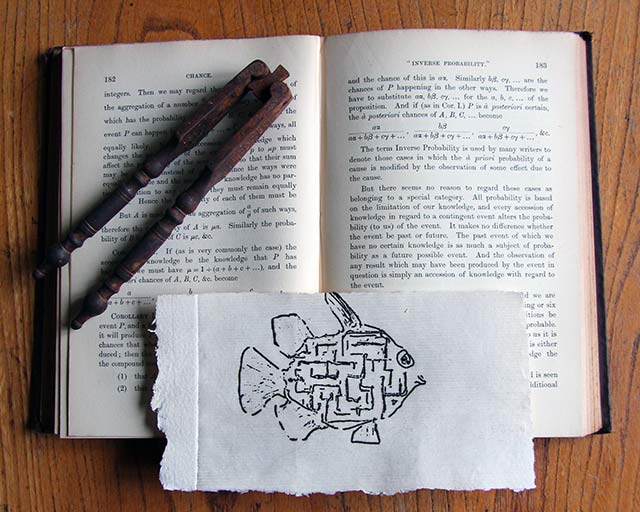 182 CHANCE.
integers. Then we may regard the of
the aggregation of a
which has the probability
event P can happen ways, all
equally likely knowledge which
changes the to μρ must
affect the so that their sum
may be instead of the ways were
and the knowledge has no par-
to any they must remain equally
Hence the of each of them must be
But A is an aggregation of a/σ of such ways,
therefore the of A is μa. Similarly the proba-
bility of B C is μc, &c.
If (as is very commonly the case) the
be the knowledge that P has
we must have μ = 1 ÷ (a+b+c+...). and the
chances of A, B, C, &c. become
a
a+b+c+...
COROLLARY
event P, and
it will produce
chances that
duced; then the
the compound
(1) that
(2) that
"INVERSE PROBABILITY." 183
and the chance of this is aα. Similarly bβ, cγ, ... are the
chances of P happening in the other ways. Therefore we
have to substitute aα, bβ, cγ, ... for the a, b, c, ... of the
proposition. And if (as in Cor. 1.) P is à posteriori certain,
the à posteriori chances of A, B, C, ... become
aα bβ cγ
aα+bβ+cγ+...' aα+bβ+cγ+...' aα+bβ+cγ+...' &c.
The term Inverse Probability is used by many writers to
denote those cases in which the à priori probability of a
cause is modified by the observation of some effect due to
the cause.
But there seems no reason to regard these cases as
belonging to a special category. All probability is based
on the limitation of our knowledge, and every accession of
knowledge in regard to a contingent event alters the proba-
bility (to us) of the event. It makes no difference whether
the event be past or future. The past event of which we
have no certain knowledge is as much a subject of proba-
bility as a future possible event. And the observation of
any result which may have been produced by the event in
question is simply an accession of knowledge with regard to
the event.
we are
or six
be
probable.
us it is
is either
the
is seen
additional